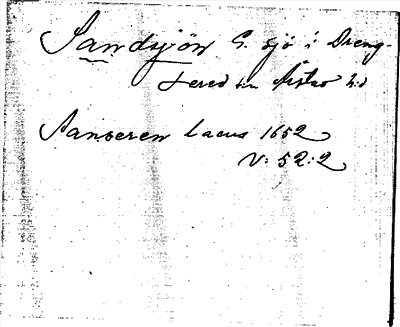 Sandsjön G. sjö i Dreng-
sered sn Årstad hd
Sanseren lacus 1652
V: 52:2